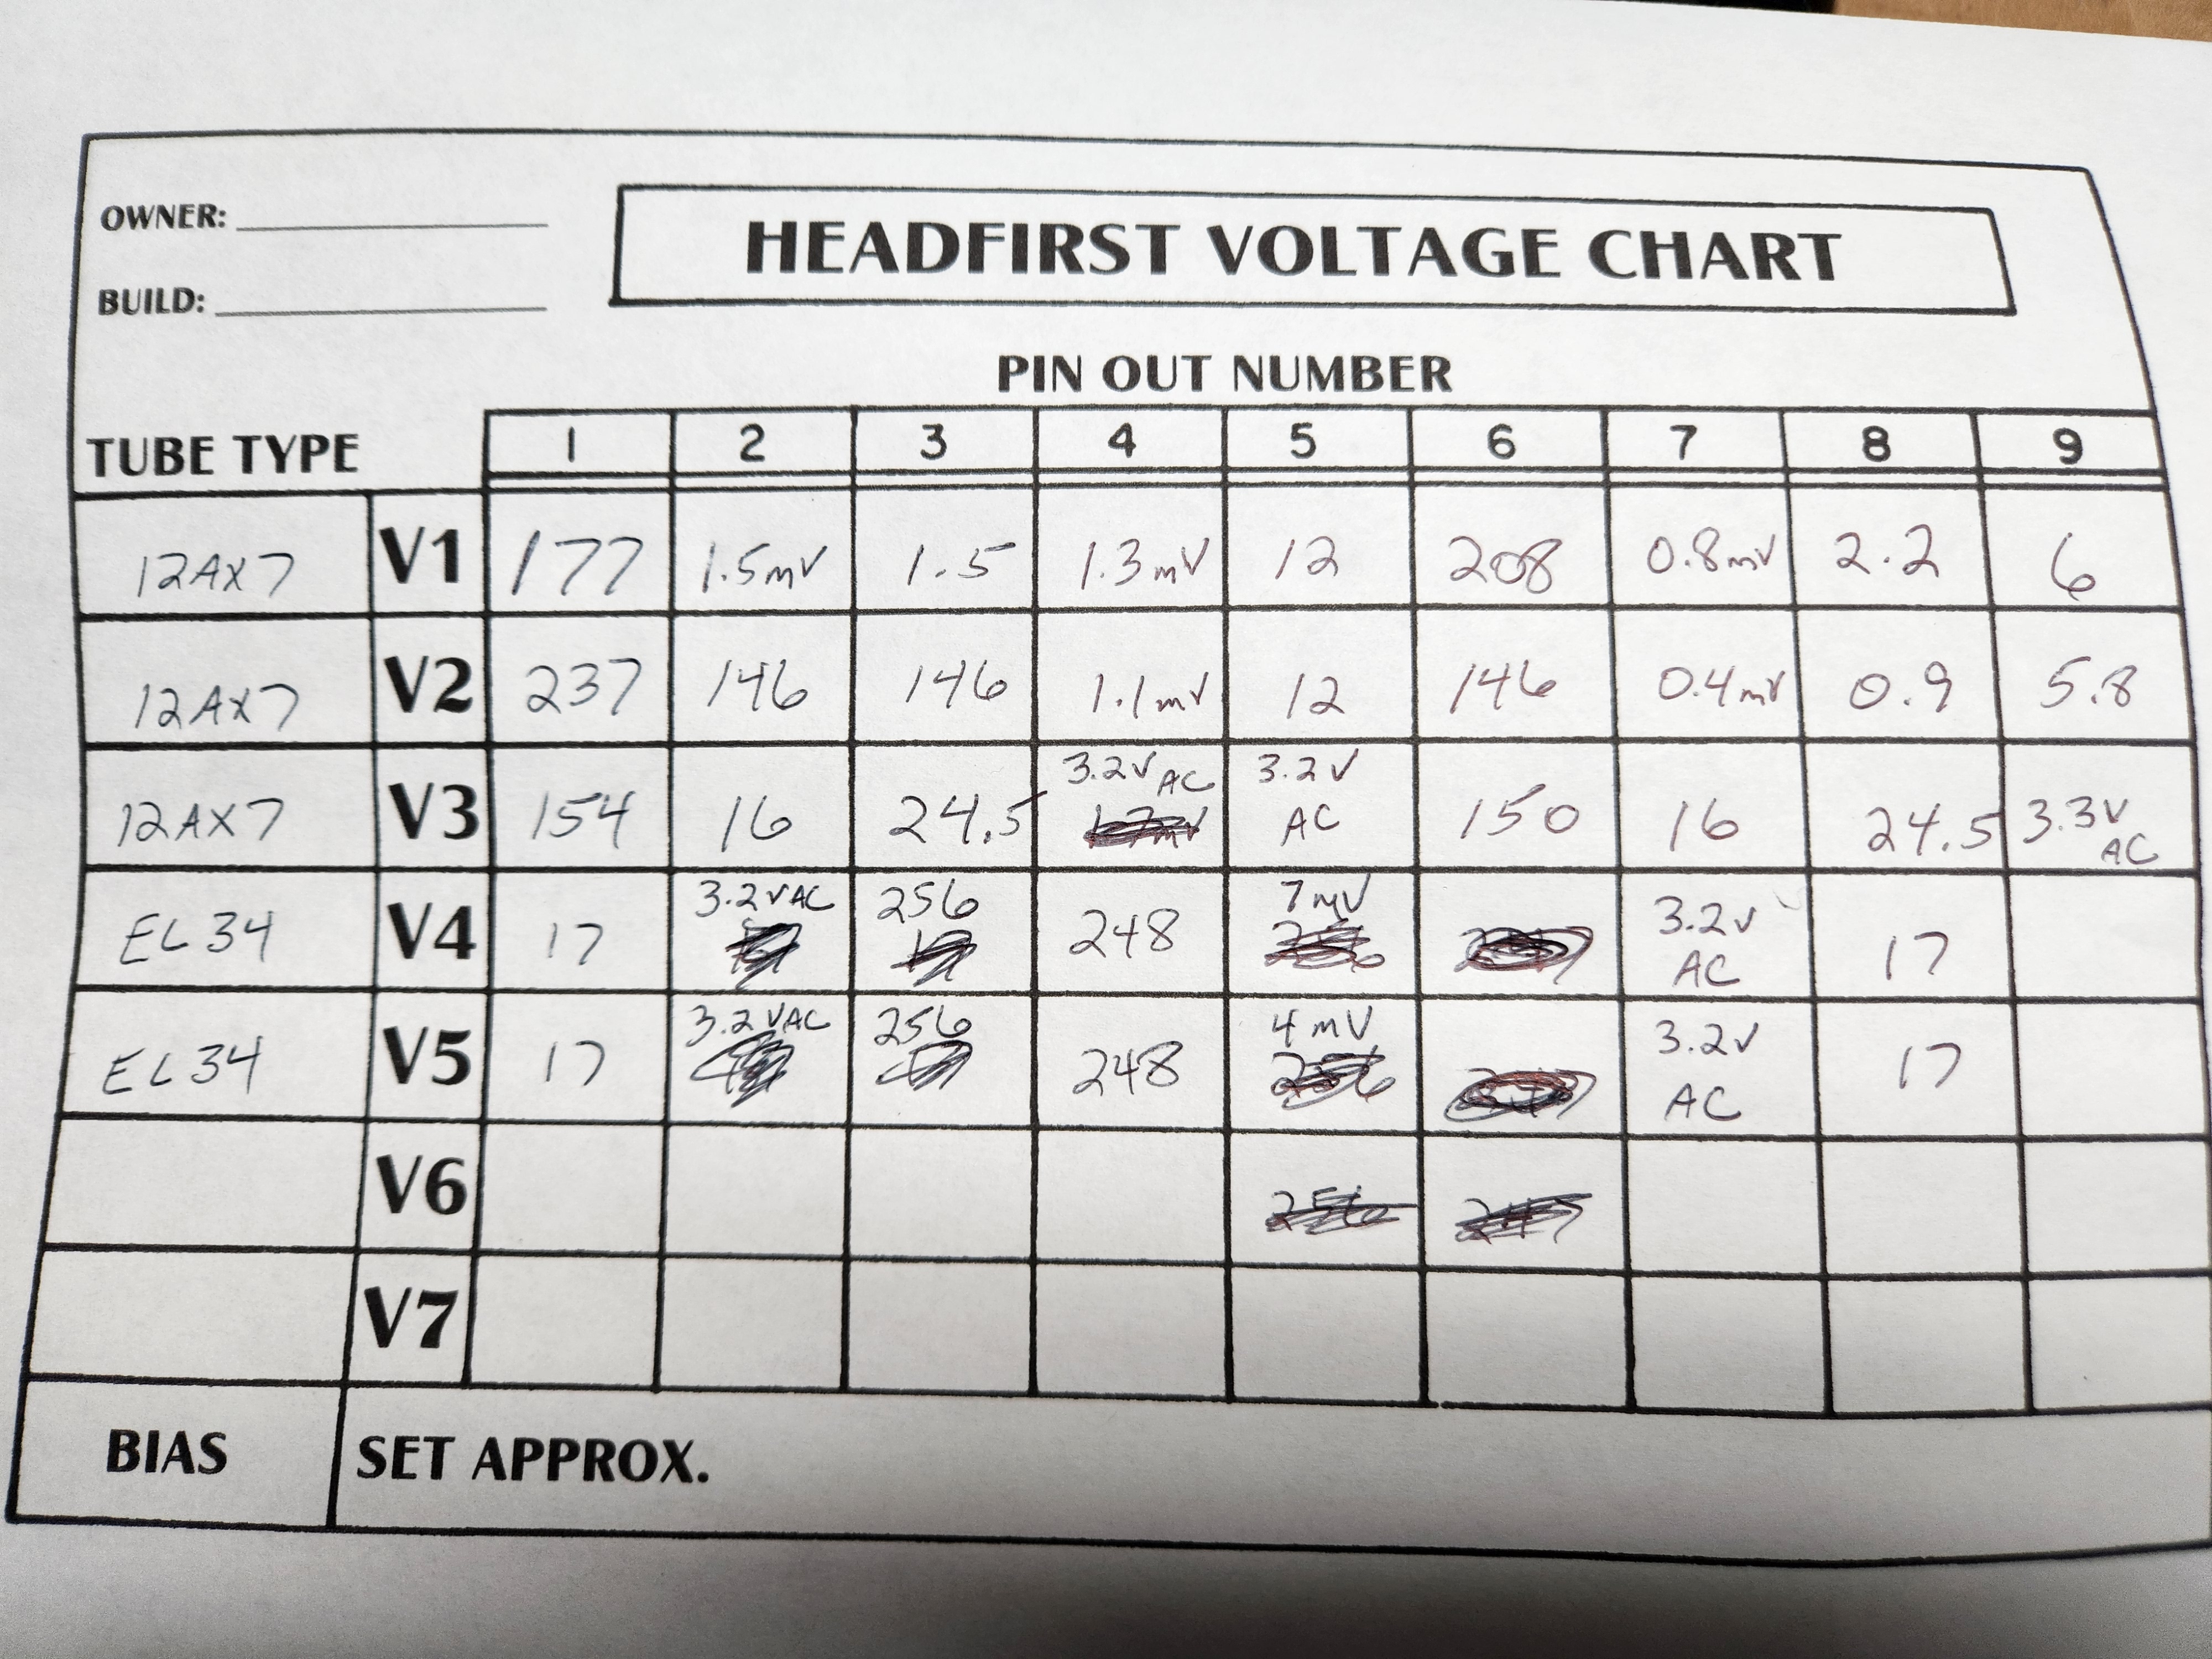 OWNER:
HEADFIRST VOLTAGE CHART
BUILD:
PIN OUT NUMBER
TUBE TYPE 1 2 3 4 5 6 7 8 9
12AX7 V1 177 1.5mV 1.5 1.3mV 12 208 0.8mV 2.2 6
12AX7 V2 237 146 146 1.1mV 12 146 0.4mV 0.9 5.8
12AX7 V3 154 16 24.5 3.2V AC 3.2V AC 150 16 24.5 3.3V AC
EL34 V4 17 3.2VAC 256 248 7mV 3.2V AC 17
EL34 V5 17 3.2VAC 256 248 4mV 3.2V AC 17
V6
V7
BIAS SET APPROX.